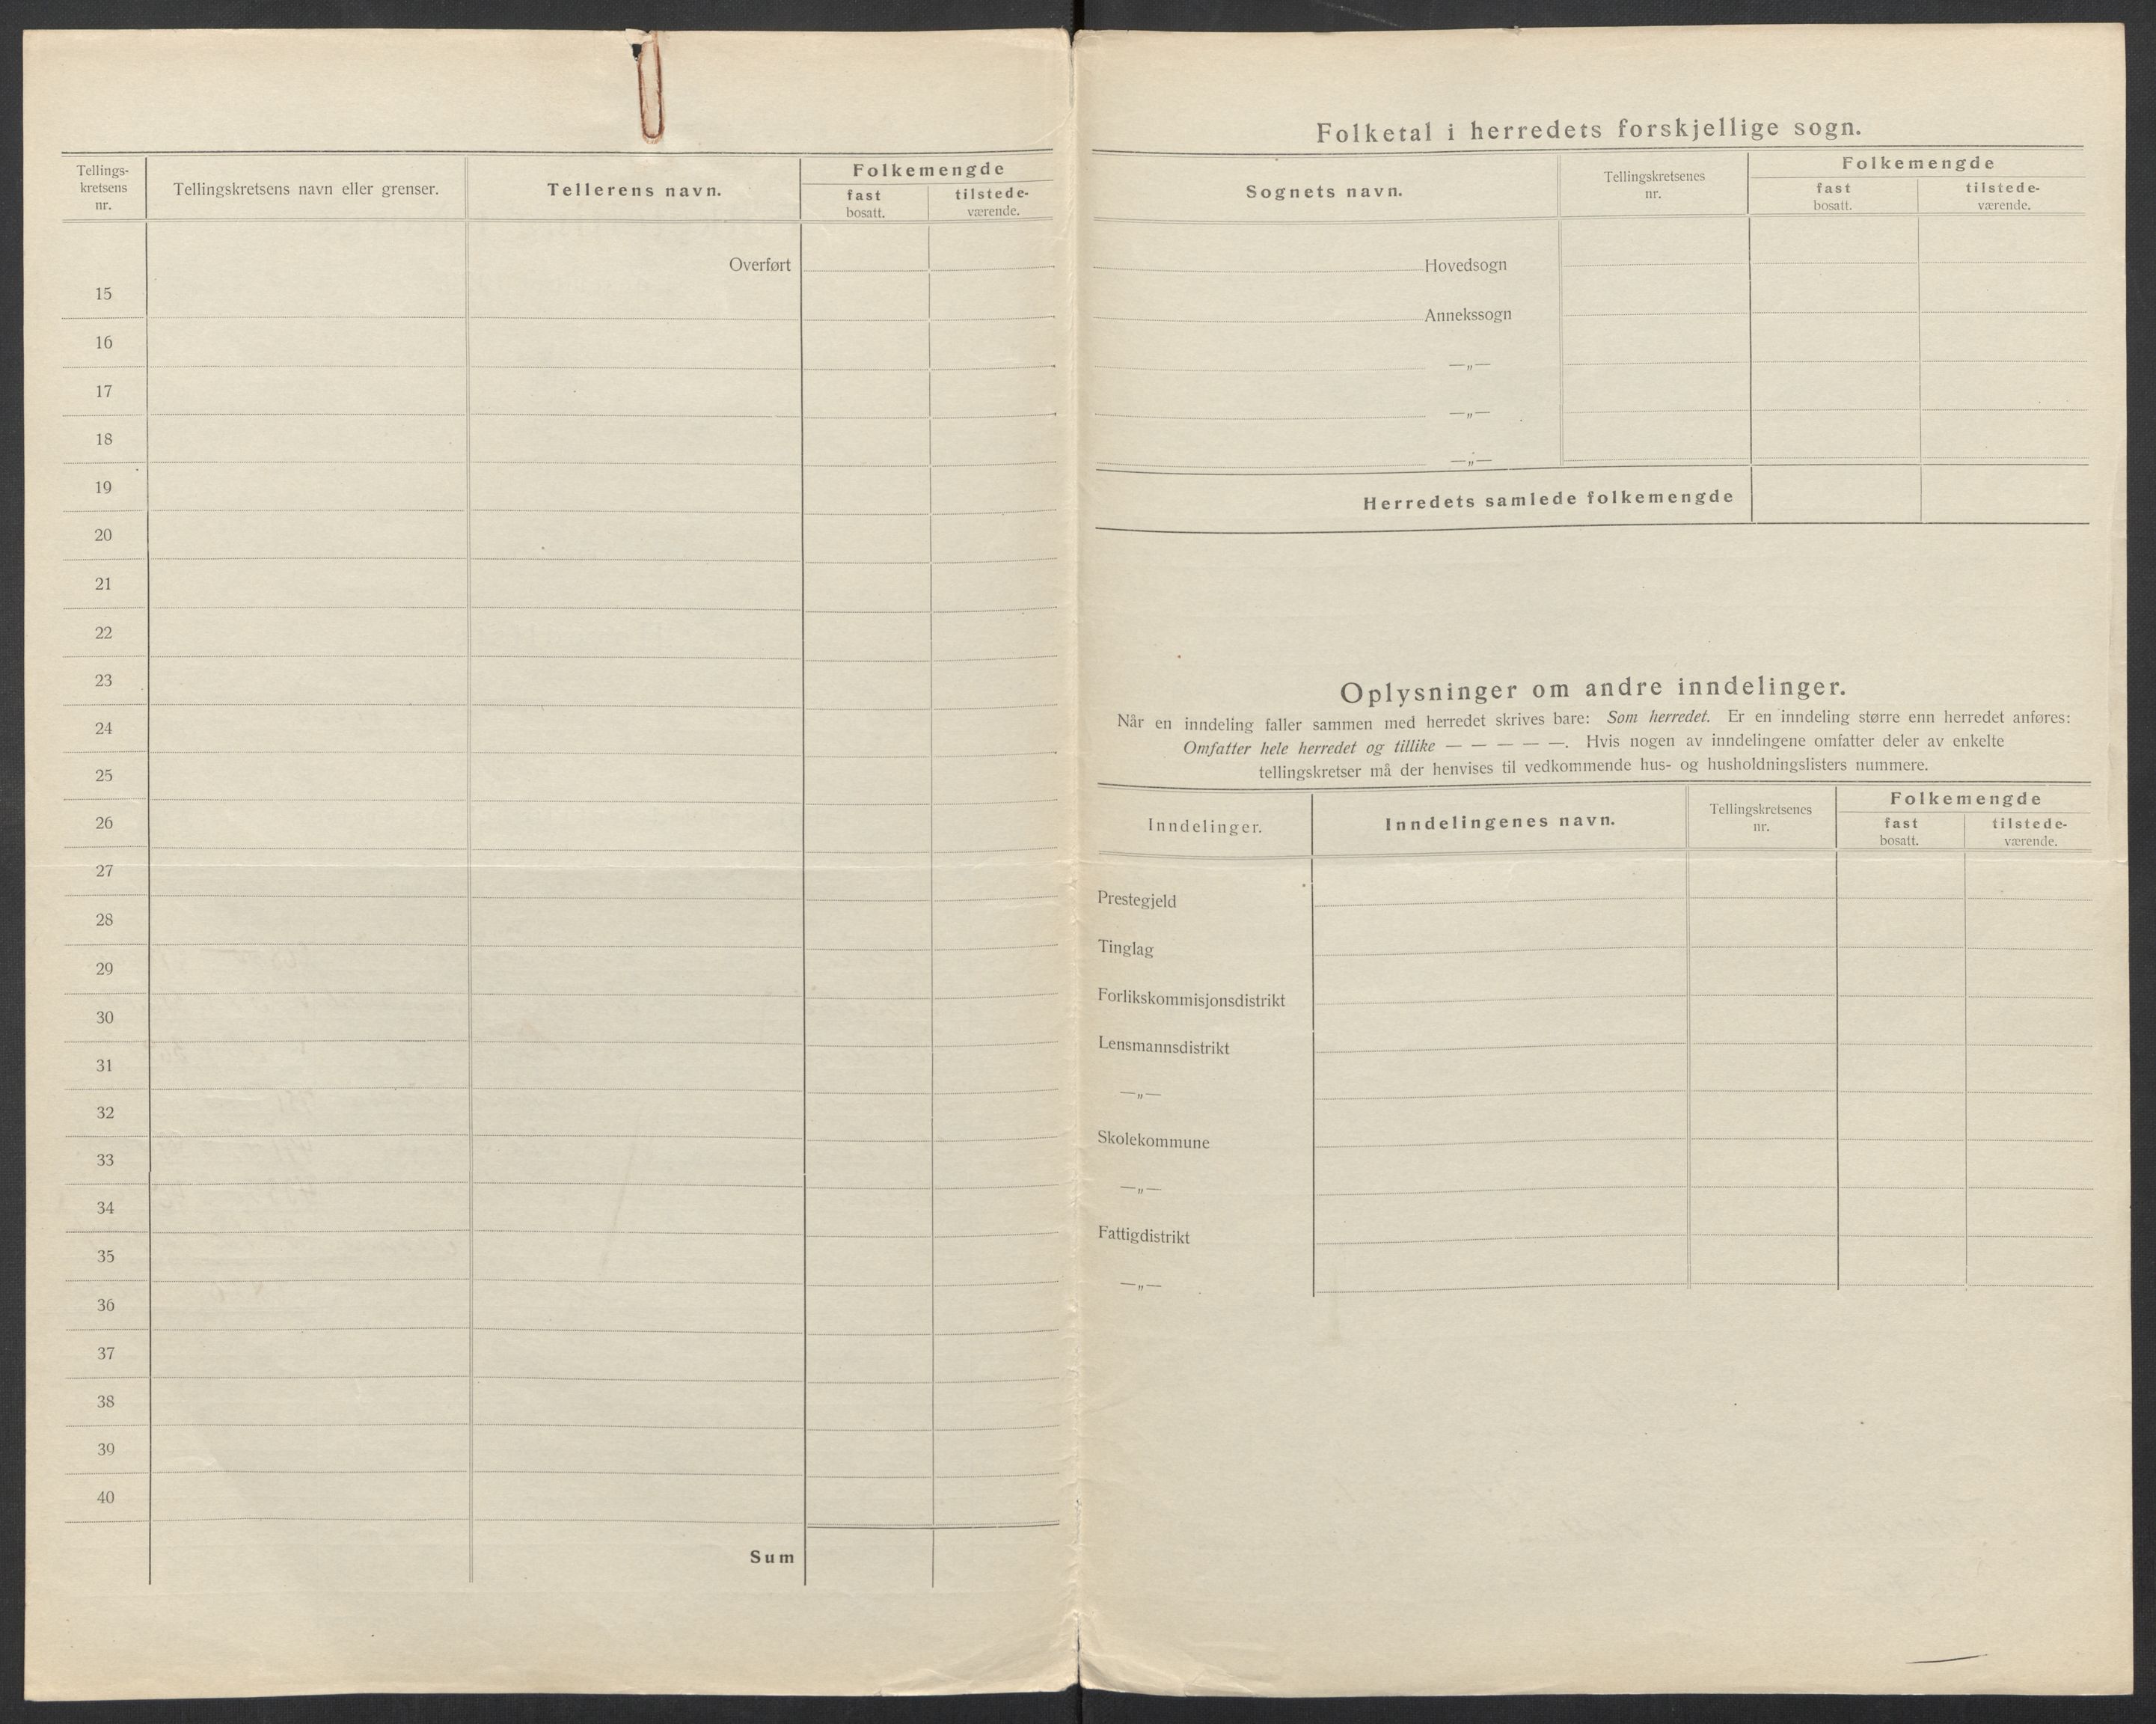 Tellings-
kretsens
nr.
Tellingskretsens navn eller grenser.
Tellerens navn.
Folkemengde
fast
bosatt.
tilstede-
værende.
Overført
15
16
17
18
19
20
21
22
23
24
25
26
27
28
29
30
31
32
33
34
35
36
37
38
39
40
Sum
Folketal i herredets forskjellige sogn.
Sognets navn.
Tellingskretsenes
nr.
Folkemengde
fast
bosatt.
tilstede-
værende.
Hovedsogn
Annekssogn
—„—
—„—
—„—
Herredets samlede folkemengde
Oplysninger om andre inndelinger.
Når en inndeling faller sammen med herredet skrives bare: Som herredet. Er en inndeling større enn herredet anføres:
Omfatter hele herredet og tillike — — — — —. Hvis nogen av inndelingene omfatter deler av enkelte
tellingskretser må der henvises til vedkommende hus- og husholdningslisters nummere.
Inndelinger.
Inndelingenes navn.
Tellingskretsenes
nr.
Folkemengde
fast
bosatt.
tilstede-
værende.
Prestegjeld
Tinglag
Forlikskommisjonsdistrikt
Lensmannsdistrikt
—„—
Skolekommune
—„—
Fattigdistrikt
—„—